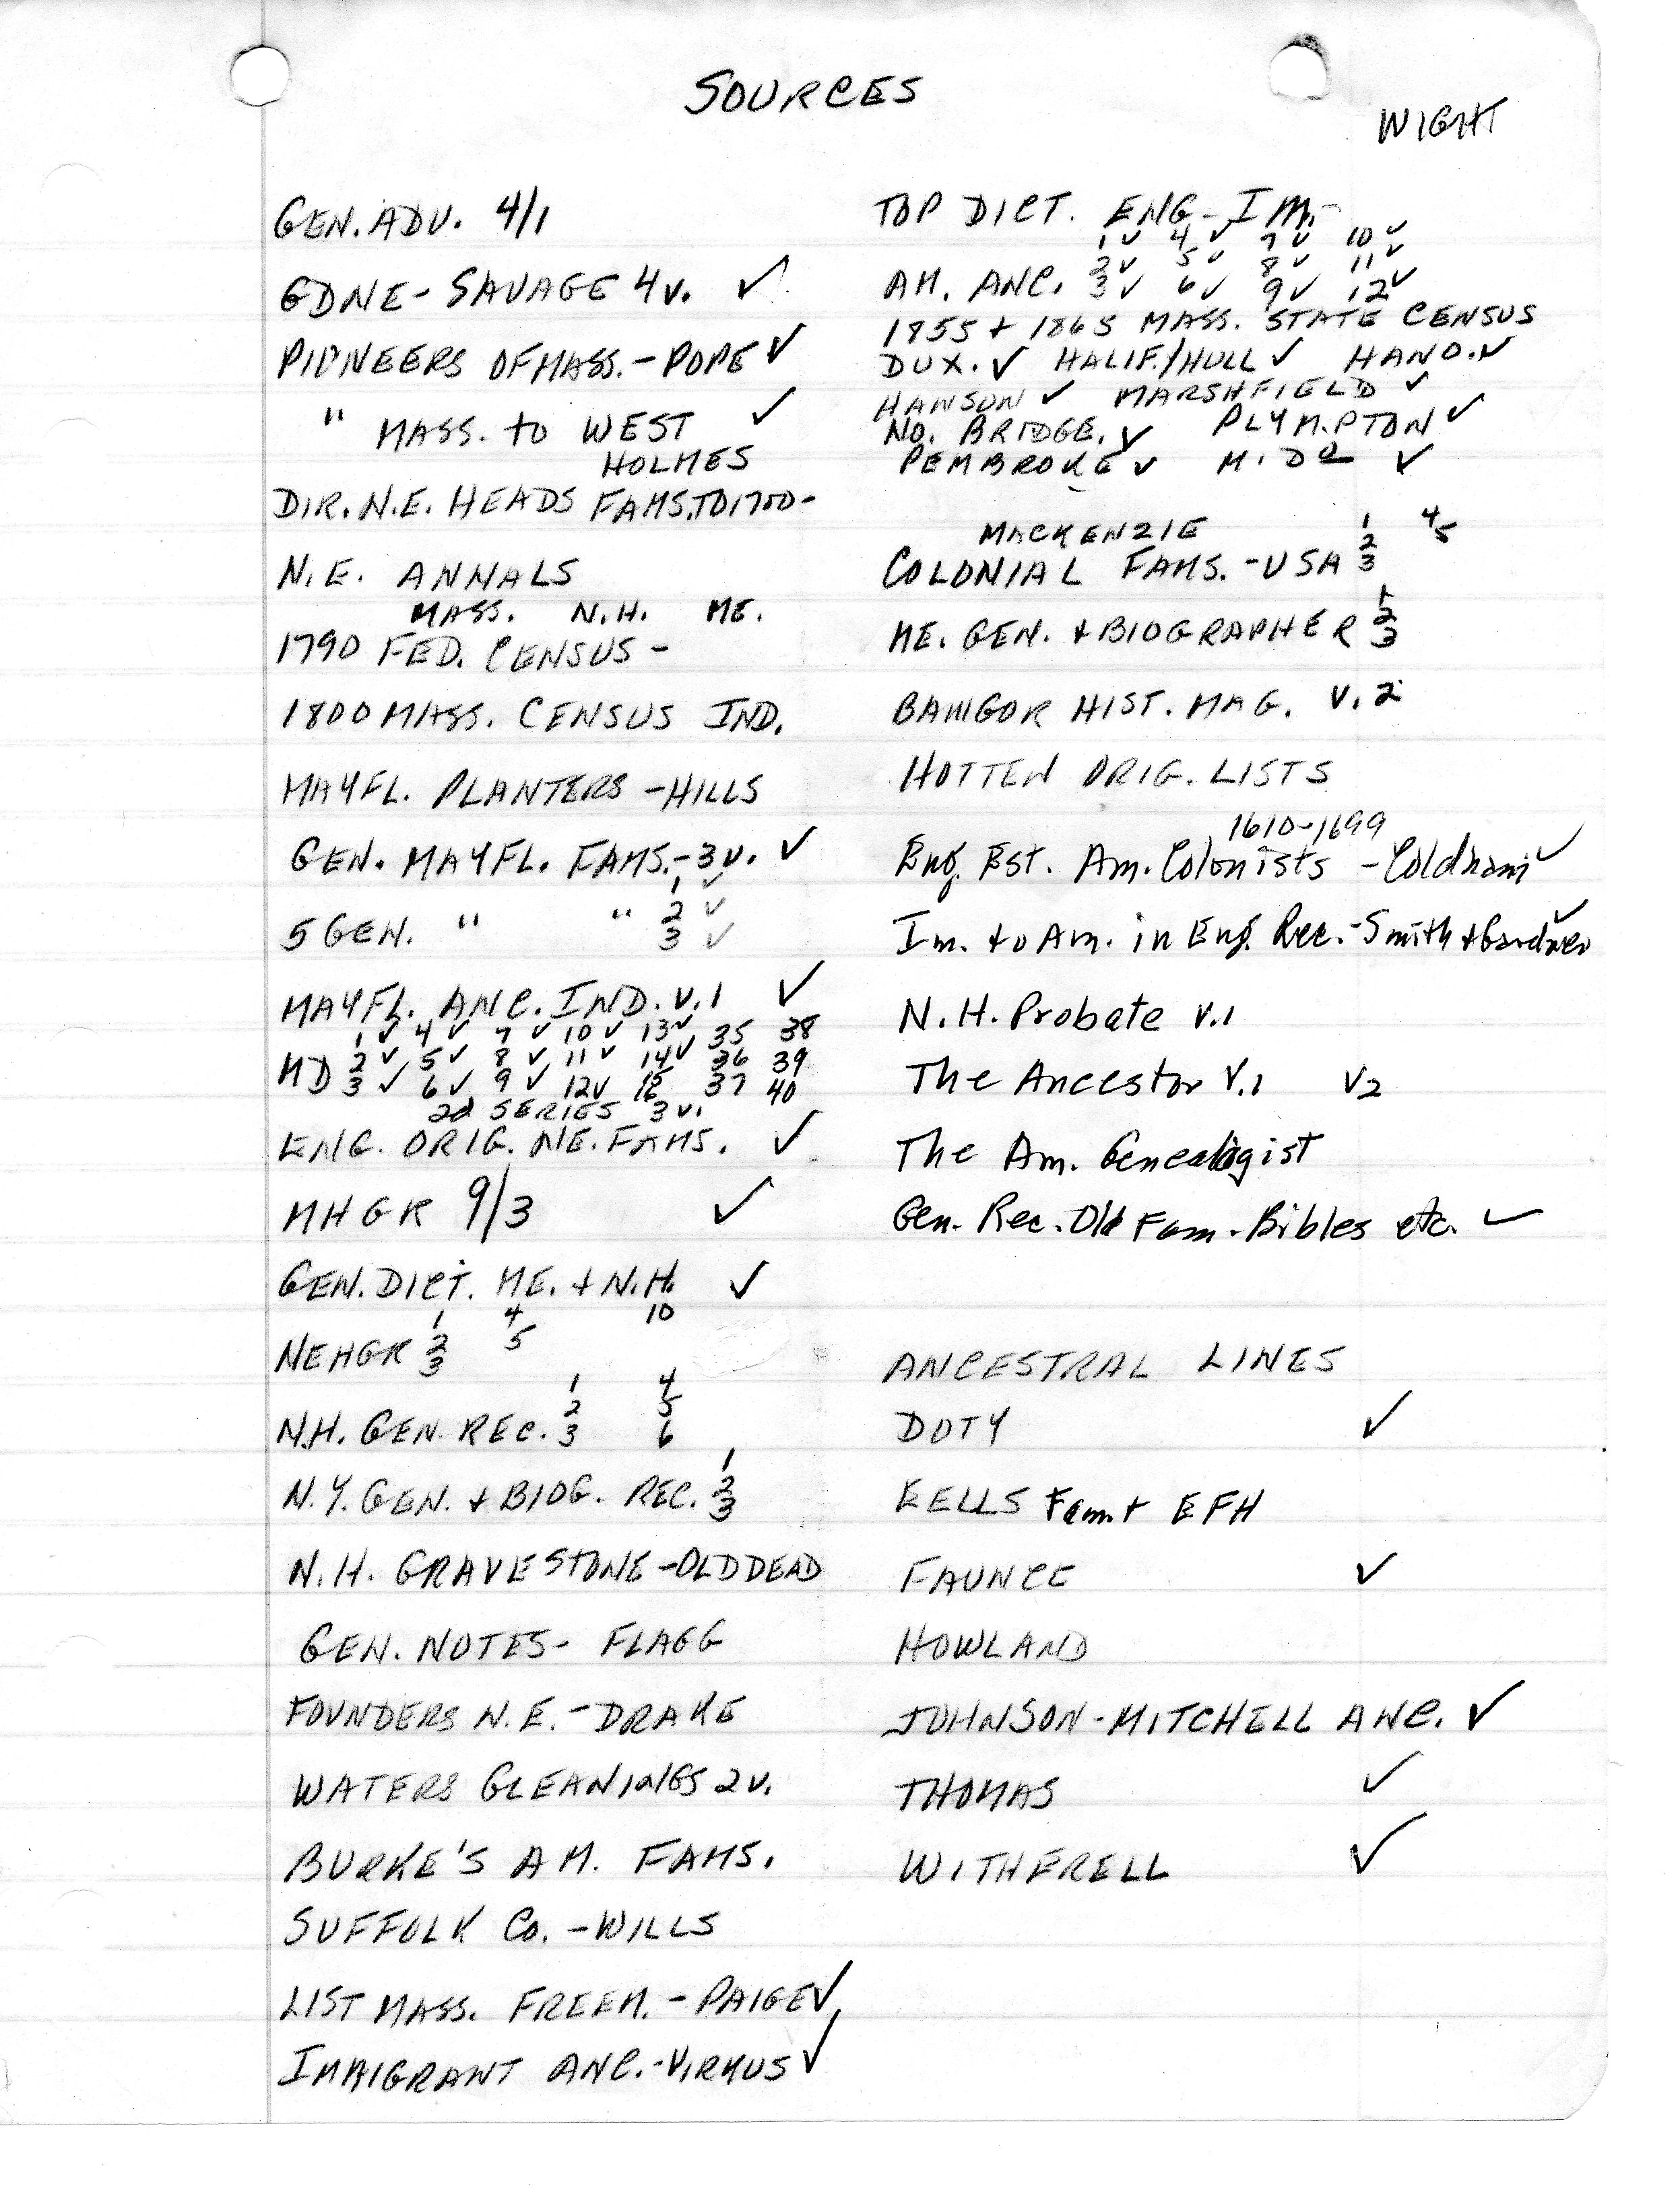 SOURCES
WIGHT
GEN. ADV. 4/1
GDNE - SAVAGE 4v. ✓
PIONEERS OF MASS. - POPE ✓
" MASS. to WEST ✓
HOLMES
DIR. N.E. HEADS FAMS. TO 1700 -
N.E. ANNALS
MASS. N.H. ME.
1790 FED. CENSUS -
1800 MASS. CENSUS IND.
MAYFL. PLANTERS - HILLS
GEN. MAYFL. FAMS. - 3v. ✓
1 ✓
5 GEN. " " 2 ✓
3 ✓
MAYFL. ANC. IND. v.1 ✓
1 ✓ 4 ✓ 7 ✓ 10 ✓ 13 ✓ 35 38
MD 2 ✓ 5 ✓ 8 ✓ 11 ✓ 14 ✓ 36 39
3 ✓ 6 ✓ 9 ✓ 12 ✓ 37 40
2d SERIES 3 v.
ENG. ORIG. NE. FAMS. ✓
MHGR 9/3 ✓
GEN. DICT. ME. + N.H. ✓
1 4 10
NEHGR 2 5
3
1 4
2 5
N.H. GEN. REC. 3 6
1
N.Y. GEN. + BIOG. REC. 2
3
N.H. GRAVESTONE - OLD DEAD
GEN. NOTES - FLAGG
FOUNDERS N.E. - DRAKE
WATERS GLEANINGS 2v.
BURKE'S AM. FAMS.
SUFFOLK Co. - WILLS
LIST MASS. FREEM. - PAIGE ✓
IMMIGRANT ANC. - VIRKUS ✓
TOP DICT. ENG - IM. -
1 ✓ 4 ✓ 7 ✓ 10 ✓
2 ✓ 5 ✓ 8 ✓ 11 ✓
AM. ANC. 3 ✓ 6 ✓ 9 ✓ 12 ✓
1855 + 1865 MASS. STATE CENSUS
DUX. ✓ HALIF./HULL ✓ HANO. ✓
HANSON ✓ MARSHFIELD ✓
NO. BRIDGE. ✓ PLYMPTON ✓
PEMBROKE ✓ ✓
MACKENZIE 1 4
2 5
COLONIAL FAMS. - USA 3
1
2
ME. GEN. + BIOGRAPHER 3
BANGOR HIST. MAG. V. 2
HOTTEN ORIG. LISTS
1610-1699
Eng. Est. Am. Colonists - Coldham ✓
Im. to Am. in Eng. Rec. - Smith + Gardner ✓
N.H. Probate v.1
The Ancestor V.1 V2
The Am. Genealogist
Gen. Rec. Old Fam. Bibles etc. ✓
ANCESTRAL LINES
DOTY ✓
EELLS Fam. + EFH
FAUNCE ✓
HOWLAND
JOHNSON - MITCHELL ANC. ✓
THOMAS ✓
WITHERELL ✓